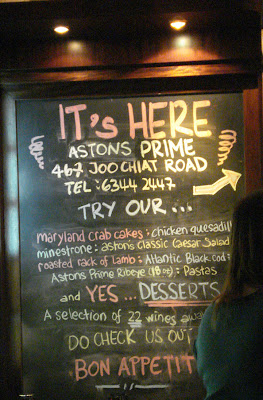 IT'S HERE
ASTONS PRIME
467 JOO CHIAT ROAD
TEL: 6344 2447
TRY OUR...
maryland crab cakes: chicken quesadill
minestrone: astons classic Caesar Salad
roasted rack of lamb: Atlantic Black cod:
Astons Prime Ribeye (18oz): Pastas
and YES... DESSERTS
A selection of 22 wines awa
DO CHECK US OUT
BON APPETIT